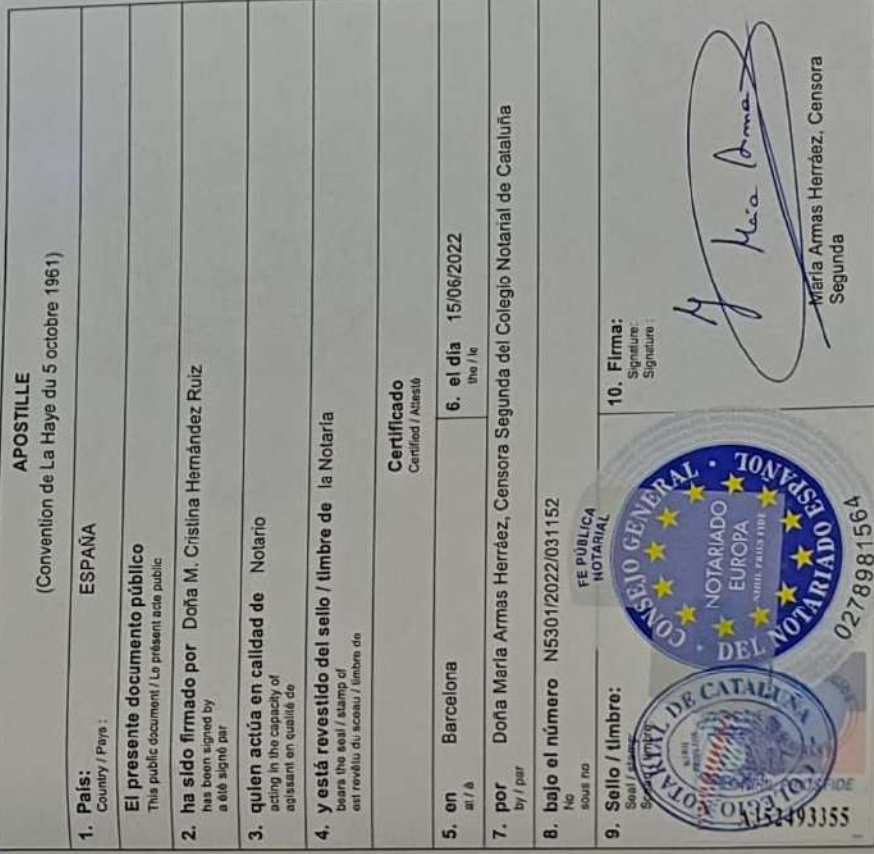 APOSTILLE
(Convention de La Haye du 5 octobre 1961)
1. País: ESPAÑA
Country / Pays :
El presente documento público
This public document / Le présent acte public
2. ha sido firmado por Doña M. Cristina Hernández Ruiz
has been signed by
a été signé par
3. quien actúa en calidad de Notario
acting in the capacity of
agissant en qualité de
4. y está revestido del sello / timbre de la Notaría
bears the seal / stamp of
est revêtu du sceau / timbre de
Certificado
Certified / Attesté
5. en Barcelona
at / à
6. el día 15/06/2022
the / le
7. por Doña María Armas Herráez, Censora Segunda del Colegio Notarial de Cataluña
by / par
8. bajo el número N5301/2022/031152
No
sous no
9. Sello / timbre:
Seal / stamp:
FE PÚBLICA
NOTARIAL
CONSEJO GENERAL · DEL NOTARIADO ESPAÑOL ·
NOTARIADO
EUROPA
NIHIL PRIUS FIDE
0278981564
COLEGIO NOTARIAL DE CATALUÑA
A152493355
10. Firma:
Signature:
Signature :
María Armas
María Armas Herráez, Censora
Segunda